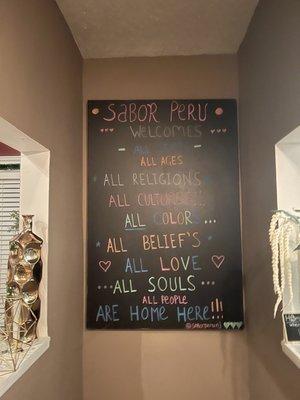 SABOR PERU
WELCOMES
ALL
ALL AGES
ALL RELIGIONS
ALL CULTURES!!!
ALL COLORS...
ALL BELIEF'S
ALL LOVE
ALL SOULS
ALL PEOPLE
ARE HOME HERE!!!